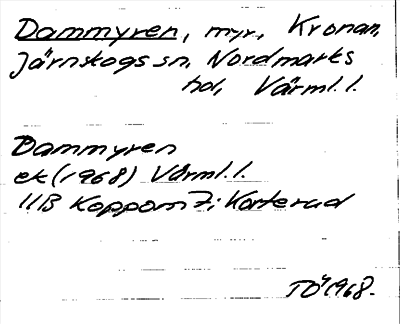 Dammyren, myr, Kronan,
Järnskogs sn, Nordmarks
hd, Värml. l.
Dammyren
ek (1968) Värml. l.
11B Koppom 7; Karterad
TÖ 1968.